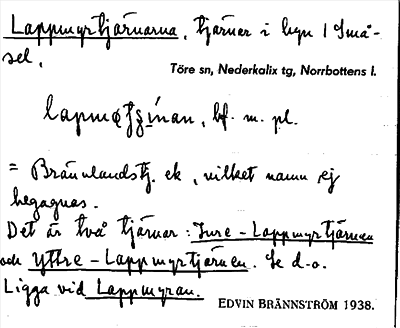 Lappmyrtjärnarna, tjärnar i byn 1 Små-
sel.
Töre sn, Nederkalix tg, Norrbottens l.
bf. m. pl.
= Brännlandstj. ek, vilket namn ej
begagnas.
Det är två tjärnar: Inre-Lappmyrtjärnen
och Yttre-Lappmyrtjärnen. Se d.o.
Ligga vid Lappmyran.
EDVIN BRÄNNSTRÖM 1938.